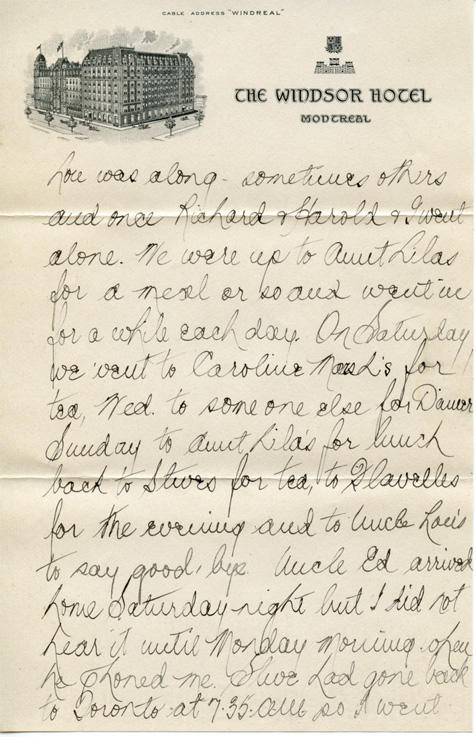 CABLE ADDRESS "WINDREAL"
THE WINDSOR HOTEL
MONTREAL
Lou was along - sometimes others
and once Richard & Harold & I went
alone. We were up to Aunt Lilas
for a meal or so and went in
for a while each day. On Saturday
we went to Caroline for
tea, Wed. to someone else for Dinner
Sunday to Aunt Lila's for lunch
back to Steves for tea, to Flavelles
for the evening and to Uncle Lou's
to say good, bye. Uncle Ed arrived
home Saturday night but I did not
hear it until Monday morning when
he phoned me. Steve had gone back
to Toronto at 7.35 AM so I went